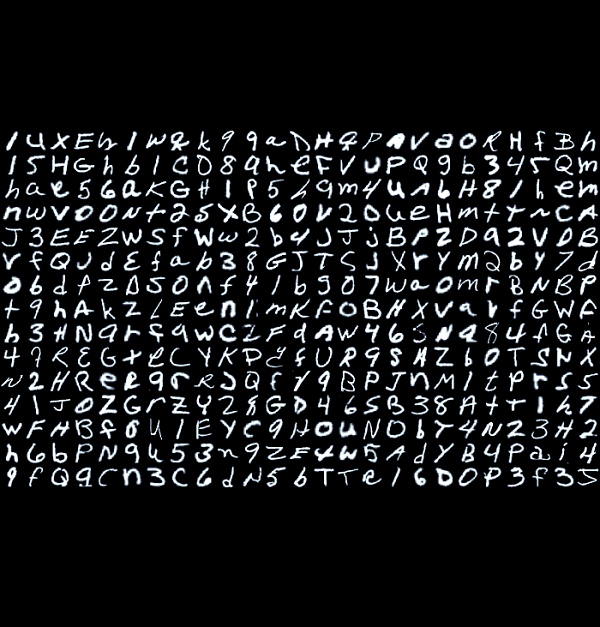 1 U X E h 1 W Q k 9 9 a D H Q P A V a O R H f B h
1 5 H G h b 1 C D 8 9 h e F V U P Q 9 b 3 4 5 Q m
h a e 5 6 a K G H 1 P 5 h 9 m 4 U A b H 8 1 h e m
n w v 0 0 N t 2 5 X B 6 0 V 2 D U e H m t r n C A
J 3 E F Z W S f W w 2 b 4 J J j B P Z D 9 2 V D B
r f Q J d E f a b 3 8 G J T S J X r Y m 2 b Y 7 d
0 b d f Z D 5 0 n f 4 1 b 9 0 7 W a 0 m r B N B P
t 9 h A k Z L E e n 1 m K F O B H X V a r f G W F
h 3 H N 9 r f 9 W C 2 F d A W 4 6 S N 9 8 4 f G A
4 9 R E G t e C Y K P E f U R 9 S H Z b O T S N X
N 2 H R e R 9 r R J Q f Y 9 B P J n M 1 t P r S 5
4 1 J O Z G r Z Y 2 8 G D 4 6 S B 3 8 A t r 1 h 7
W F H B f 8 U 1 E Y C 9 H O U N O b Y 4 N 2 3 H 2
h 6 b P N 9 U 5 3 n 9 Z F 4 W 5 A d Y B 4 P a i 4
9 f Q 9 C n 3 C 6 d N 5 b T T e 1 6 D O P 3 f 3 J